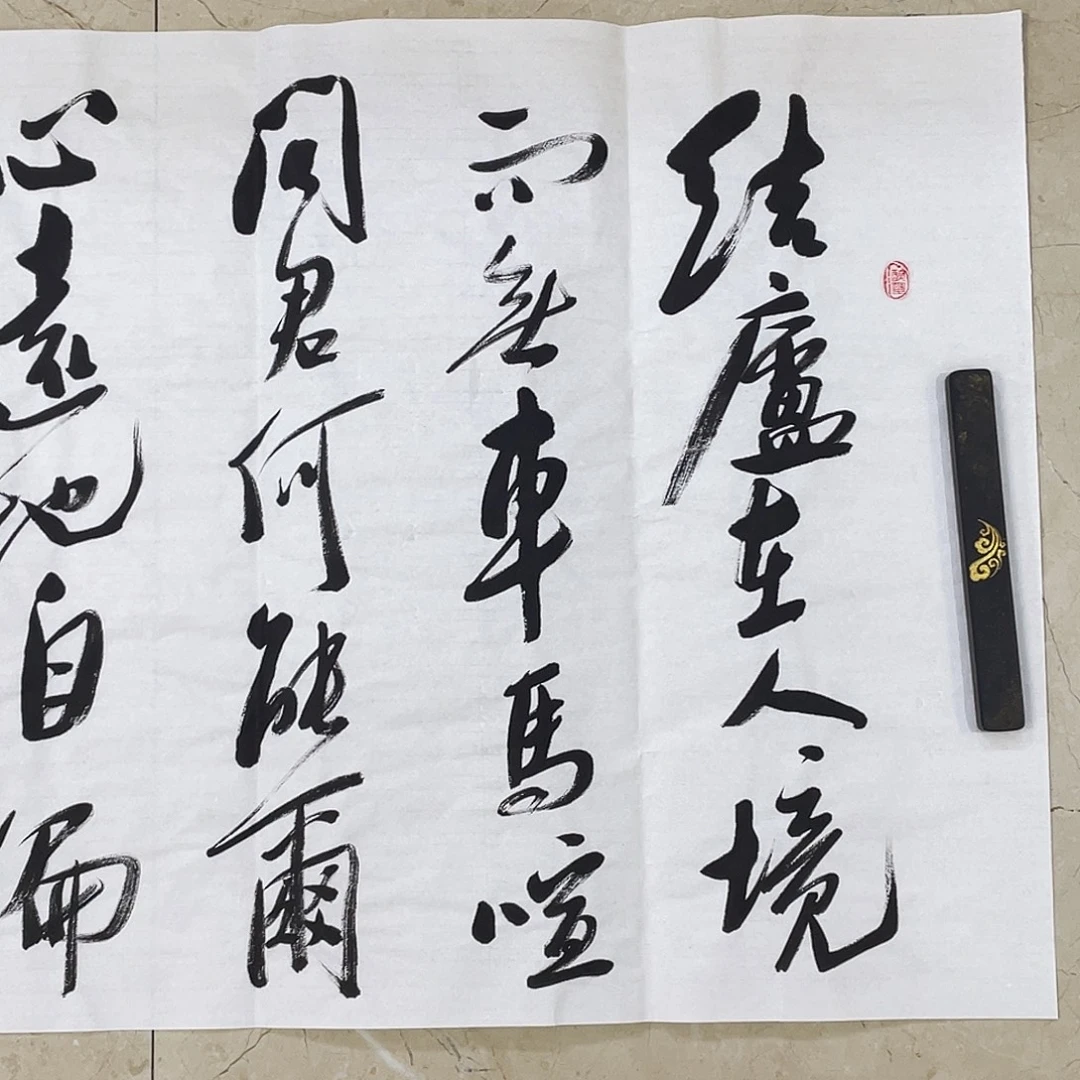 結廬在人境
而無車馬喧
問君何能爾
心遠地自偏